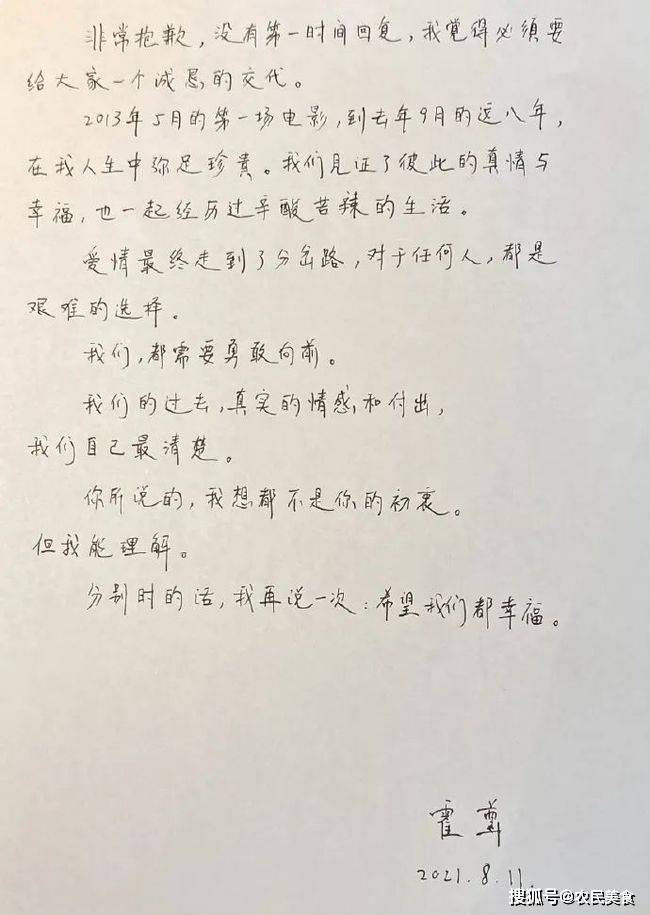 非常抱歉，没有第一时间回复，我觉得必须要
给大家一个诚恳的交代。
2013年5月的第一场电影，到去年9月的这八年，
在我人生中弥足珍贵。我们见证了彼此的真情与
幸福，也一起经历过辛酸苦辣的生活。
爱情最终走到了分岔路，对于任何人，都是
艰难的选择。
我们，都需要勇敢向前。
我们的过去，真实的情感和付出，
我们自己最清楚。
你所说的，我想都不是你的初衷。
但我能理解。
分别时的话，我再说一次：希望我们都幸福。
霍尊
2021.8.11.
搜狐号@农民美食